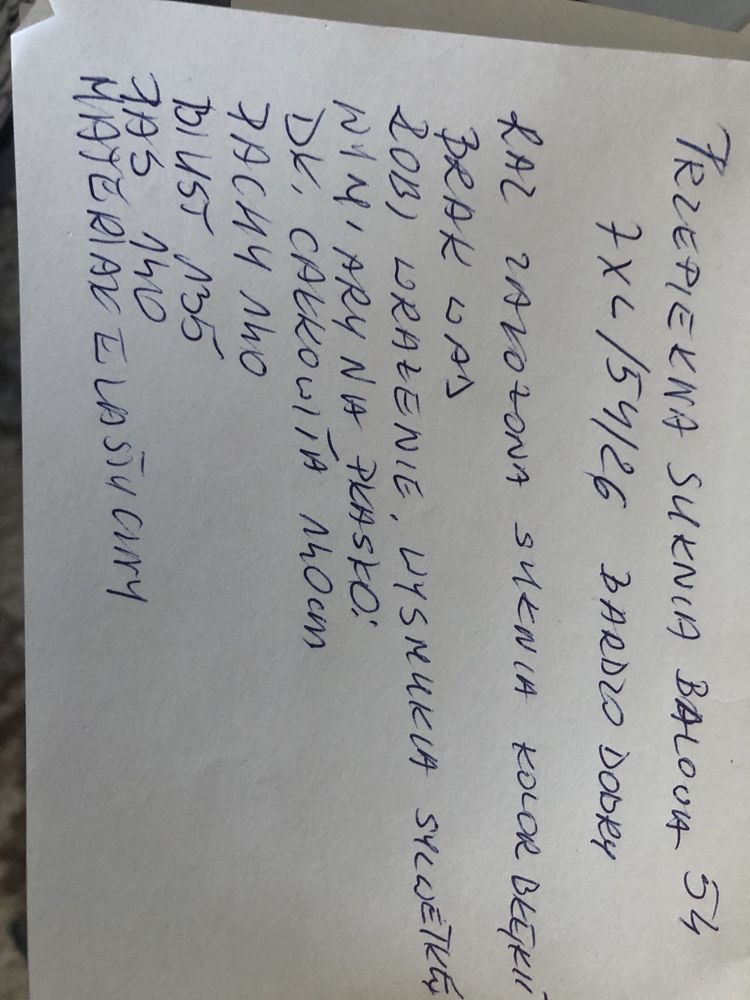 PRZEPIEKNA SUKNIA BALOWA 54
7XL/54/26 BARDZO DOBRY
RAZ ZAŁOZONA SUKNIA KOLOR BŁĘKIT
BRAK WAD
ROBI WRAZENIE, WYSMUKLA SYLWETKĘ
WYMIARY NA PŁASKO:
DŁ. CAŁKOWITA 140cm
PACHY 140
BIUST 135
PAS 140
MATERIAŁ ELASTYCZNY